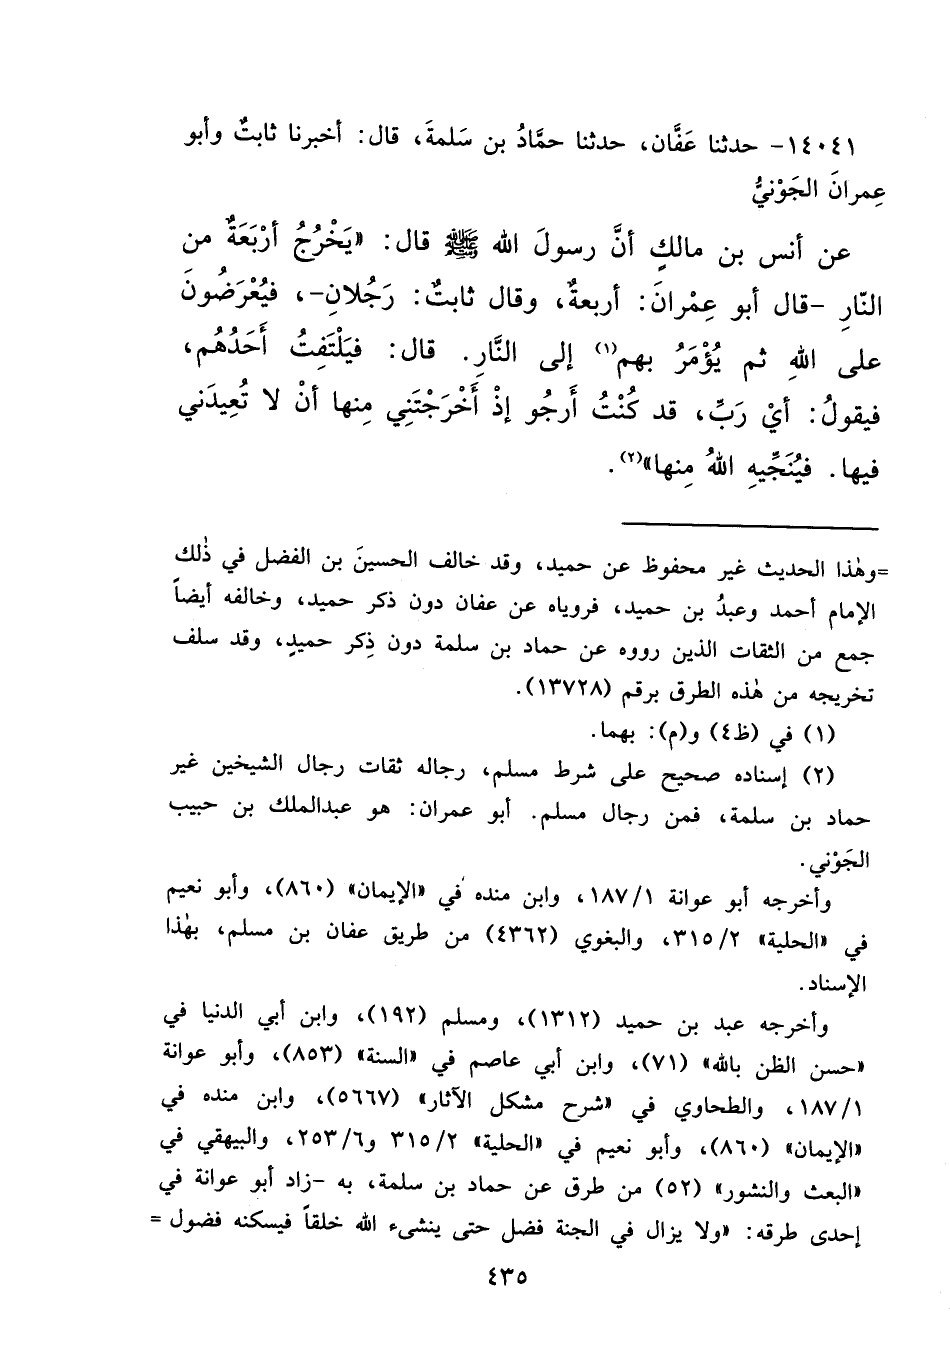 ١٤٠٤١- حدثنا عَفَّان، حدثنا حمَّادُ بن سَلمةَ، قال: أخبرنا ثابتٌ وأبو
عِمرانَ الجَوْنيُّ
عن أنس بن مالكٍ أنَّ رسولَ الله ﷺ قال: «يَخْرُجُ أرْبَعَةٌ من
النّارِ -قال أبو عِمْرانَ: أربعةٌ، وقال ثابتٌ: رَجُلانِ-، فيُعْرَضُونَ
على اللهِ ثم يُؤْمَرُ بهم(١) إلى النَّارِ. قال: فيَلْتَفِتُ أَحَدُهُم،
فيقولُ: أيْ رَبِّ، قد كُنْتُ أَرجُو إذْ أَخْرَجْتَنِي مِنها أنْ لا تُعِيدَني
فيها. فيُنَجِّيهِ اللهُ مِنها»(٢).
=وهٰذا الحديث غير محفوظ عن حميد، وقد خالف الحسينَ بن الفضل في ذٰلك
الإمام أحمد وعبدُ بن حميد، فروياه عن عفان دون ذكر حميد، وخالفه أيضاً
جمع من الثقات الذين رووه عن حماد بن سلمة دون ذِكر حميدٍ، وقد سلف
تخريجه من هٰذه الطرق برقم (١٣٧٢٨).
(١) في (ظ٤) و(م): بهما.
(٢) إسناده صحيح على شرط مسلم، رجاله ثقات رجال الشيخين غير
حماد بن سلمة، فمن رجال مسلم. أبو عمران: هو عبدالملك بن حبيب
الجَوْني.
وأخرجه أبو عوانة ١/١٨٧، وابن منده في «الإيمان» (٨٦٠)، وأبو نعيم
في «الحلية» ٢/٣١٥، والبغوي (٤٣٦٢) من طريق عفان بن مسلم، بهٰذا
الإسناد.
وأخرجه عبد بن حميد (١٣١٢)، ومسلم (١٩٢)، وابن أبي الدنيا في
«حسن الظن بالله» (٧١)، وابن أبي عاصم في «السنة» (٨٥٣)، وأبو عوانة
١/١٨٧، والطحاوي في «شرح مشكل الآثار» (٥٦٦٧)، وابن منده في
«الإيمان» (٨٦٠)، وأبو نعيم في «الحلية» ٢/٣١٥ و٦/٢٥٣، والبيهقي في
«البعث والنشور» (٥٢) من طرق عن حماد بن سلمة، به -زاد أبو عوانة في
إحدى طرقه: «ولا يزال في الجنة فضل حتى ينشىء الله خلقاً فيسكنه فضول =
٤٣٥